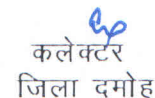 कलेक्टर
जिला दमोह